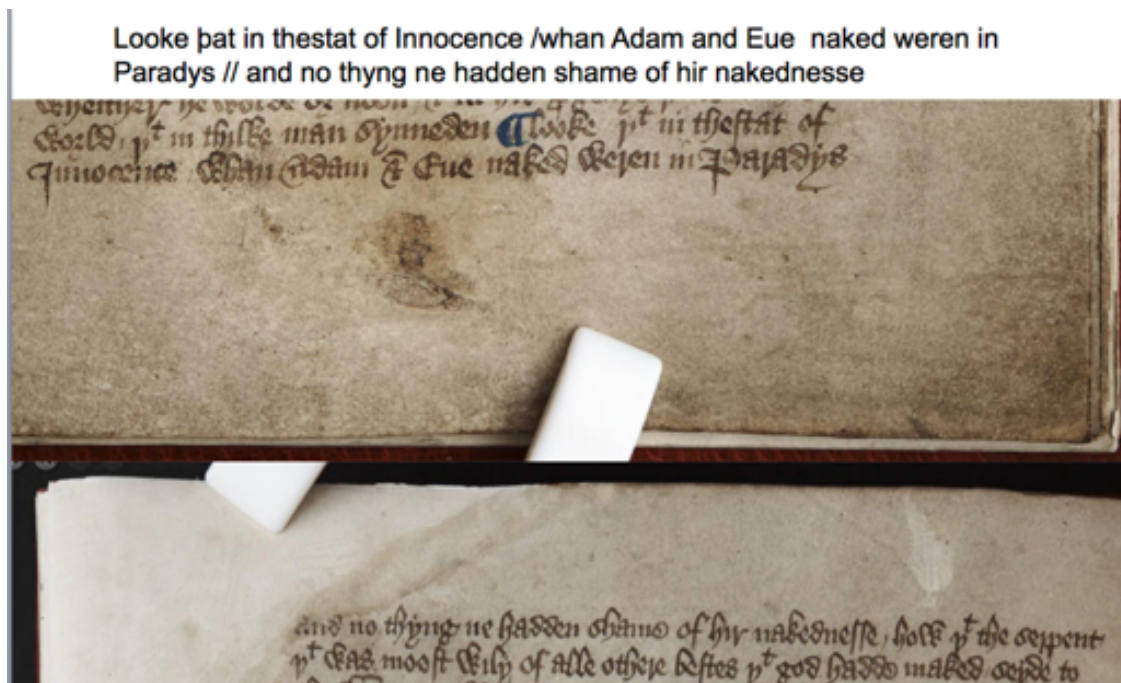 Looke þat in thestat of Innocence /whan Adam and Eue naked weren in
Paradys // and no thyng ne hadden shame of hir nakednesse
wheither he wolde or noon
world, þᵗ in thilke man synneden ¶ looke þᵗ in thestat of
Innocence whan Adam & Eue naked weren in Paradys
And no thyng ne hadden shame of hir nakednesse, how þᵗ the serpent
þᵗ was moost wily of alle othere bestes þᵗ god hadde maked seyde to